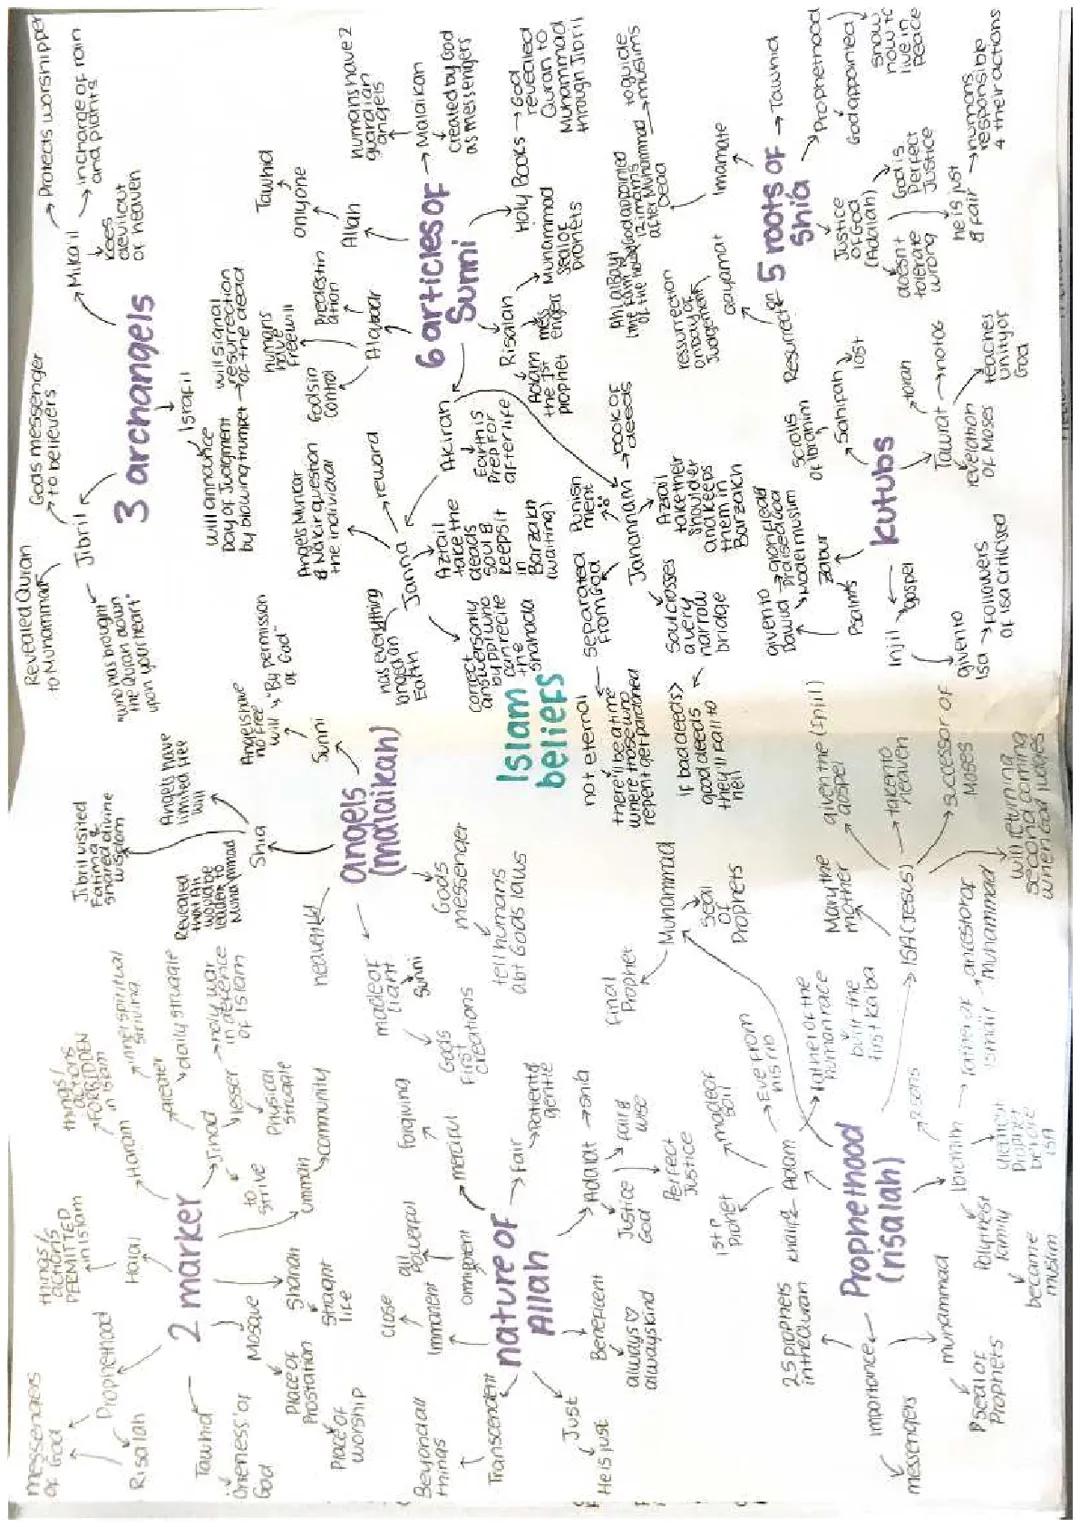 Islam
beliefs
2 marker
Prophethood
Risalah
messengers
of God
Halal
things/
actions
PERMITTED
in islam
Haram
things/
actions
FORBIDDEN
in islam
Jihad
Greater
inner spiritual
striving
daily struggle
lesser
holy war
in defence
of islam
Physical
struggle
to strive
ummah
community
Shariah
straight
life
Mosque
Place of
Prostration
Place of
worship
Tawhid
Oneness of
God
nature of
Allah
Transcendent
Beyond all
things
Immanent
close
omnipotent
all
Powerful
merciful
Forgiving
Fair
Patient &
gentle
Adalat
shia
Justice
God
fair &
wise
Perfect
Justice
Beneficent
always ♡
always kind
Just
He is just
Prophethood
(risalah)
importance
messengers
25 prophets
in the Quran
muhammad
seal of
Prophets
khalifa
Adam
1st
Prophet
made of
soil
Eve from
his rib
Father of the
human race
built the
first Ka'ba
Muhammad
Final
Prophet
Seal
of
Prophets
Ibrahim
2 sons
father of
ismail
ancestor of
Muhammad
Greatest
Prophet
before
ISA
Polytheist
family
became
muslim
ISA (Jesus)
Mary the
mother
given the (Injil)
gospel
taken to
heaven
successor of
Moses
will return in
second coming
when God judges
angels
(malaikah)
heavenly
made of
light
Sunni
Gods
First
creations
God's
messenger
tell humans
abt Gods laws
Shia
Revealed
that Ali
would be
leader to
Muhammad
Jibril visited
Fatima &
shared divine
wisdom
Angels have
limited free
will
Sunni
Angels have
no free
will
"By permission
of God"
3 archangels
Jibril
"who has brought
the Quran down
upon your heart"
Revealed Quran
to Muhammad
Gods messenger
to believers
Israfil
will announce
Day of Judgment
by blowing trumpet
will signal
resurrection
of the dead
Mika'il
Protects worshipper
in charge of rain
and plants
Keeps
devil out
of heaven
6 articles of
Sunni
Allah
only one
Tawhid
Malaikah
humans have 2
guardian
angels
created by God
as messengers
Holy Books
God
revealed
Quran to
Muhammad
through Jibril
Risalah
messengers
Muhammad
seal of
prophets
Adam
the 1st
prophet
Al qadar
Predestination
humans
have
freewill
God's in
control
Akirah
Earth is
prep for
afterlife
Janna
reward
Angels Munkar
& Nakir question
the individual
has everything
longed on
Earth
Azrail
take the
deads
soul &
keeps it
in
Barzakh
(waiting)
correct
answers only
by ppl who
can recite
the
shahada
Jahannam
book of
deeds
Punishment
Separated
from God
not eternal
there'll be a time
where those who
repent get pardoned
Azrail
take their
soul
and keeps
them in
Barzakh
Soul crosses
a very
narrow
bridge
if bad deeds >
good deeds
they'll fall to
hell
5 roots of
Shia
Tawhid
Prophethood
God appointed
show
how to
live in
peace
Justice
of God
(Adalah)
God is
Perfect
Justice
doesn't
tolerate
wrong
he is just
& fair
humans
responsible
4 their actions
Imamate
God appointed
12 imams
after Muhammad
Dead
to guide
muslims
Ahl al Bayt
(the family
of the house)
Resurrection
qayamat
resurrection
on Day of
Judgement
kutubs
Sahifah
scrolls
of Ibrahim
lost
Tawrat
torah
not og
revelation
of Moses
teaches
unity of
God
Zabur
Psalms
given to
Dawud
Model muslim
Injil
gospel
given to
Isa
followers
of Isa criticised